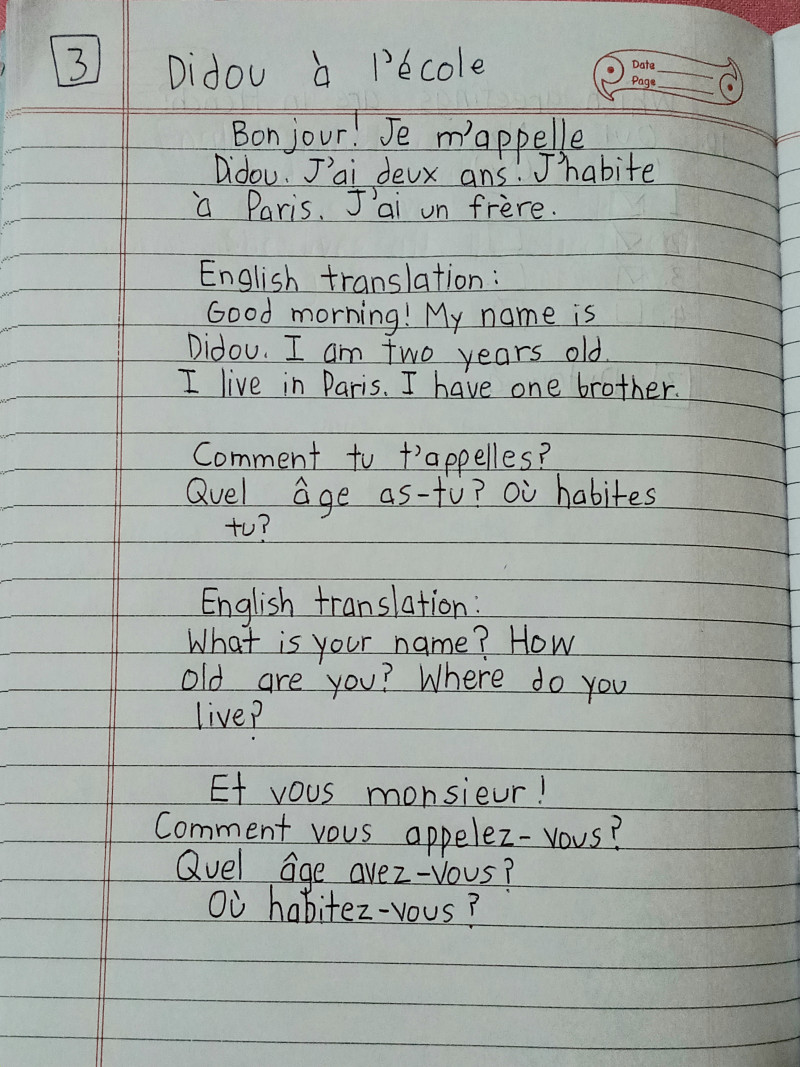 3 Didou à l'école
Date
Page
Bonjour! Je m'appelle
Didou. J'ai deux ans. J'habite
à Paris. J'ai un frère.
English translation:
Good morning! My name is
Didou. I am two years old.
I live in Paris. I have one brother.
Comment tu t'appelles?
Quel âge as-tu? Où habites
tu?
English translation:
What is your name? How
old are you? Where do you
live?
Et vous monsieur!
Comment vous appelez-vous?
Quel âge avez-vous?
Où habitez-vous?